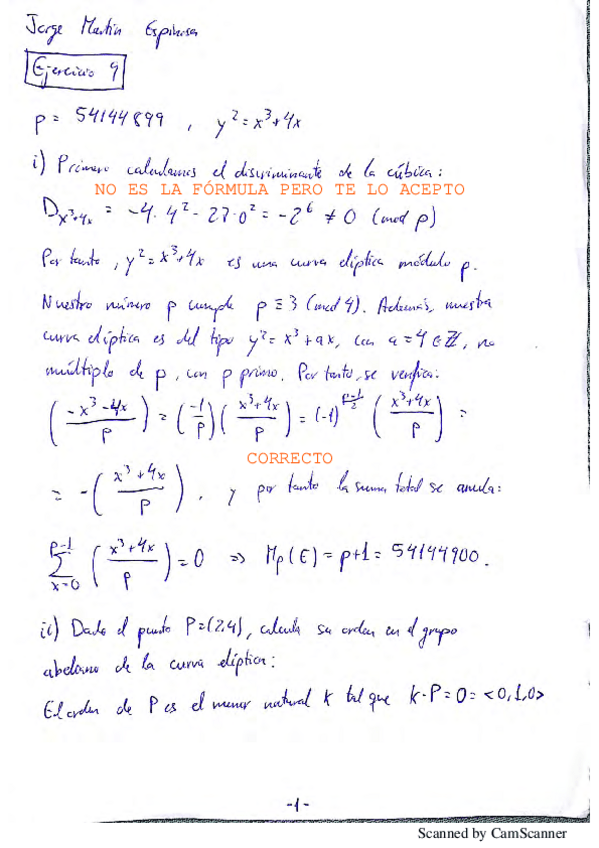 Jorge Martín Espinosa
Ejercicio 9
p = 54144899 , y² = x³+4x
i) Primero calculamos el discriminante de la cúbica:
NO ES LA FÓRMULA PERO TE LO ACEPTO
D_{x³+4x} = -4·4² - 27·0² = -2⁶ ≠ 0 (mod p)
Por tanto, y² = x³+4x es una curva elíptica módulo p.
Nuestro número p cumple p ≡ 3 (mod 4). Además, nuestra
curva elíptica es del tipo y² = x³+ax, con a = 4 ∈ ℤ, no
múltiplo de p, con p primo. Por tanto, se verifica:
(-x³-4x / p) = (-1 / p)(x³+4x / p) = (-1)^{(p-1)/2} (x³+4x / p) =
CORRECTO
= -(x³+4x / p), y por tanto la suma total se anula:
∑_{x=0}^{p-1} (x³+4x / p) = 0 ⇒ M_p(E) = p+1 = 54144900.
ii) Dado el punto P=(2,4), calcula su orden en el grupo
abeliano de la curva elíptica:
El orden de P es el menor natural k tal que k·P = O = <0,1,0>
-1-
Scanned by CamScanner